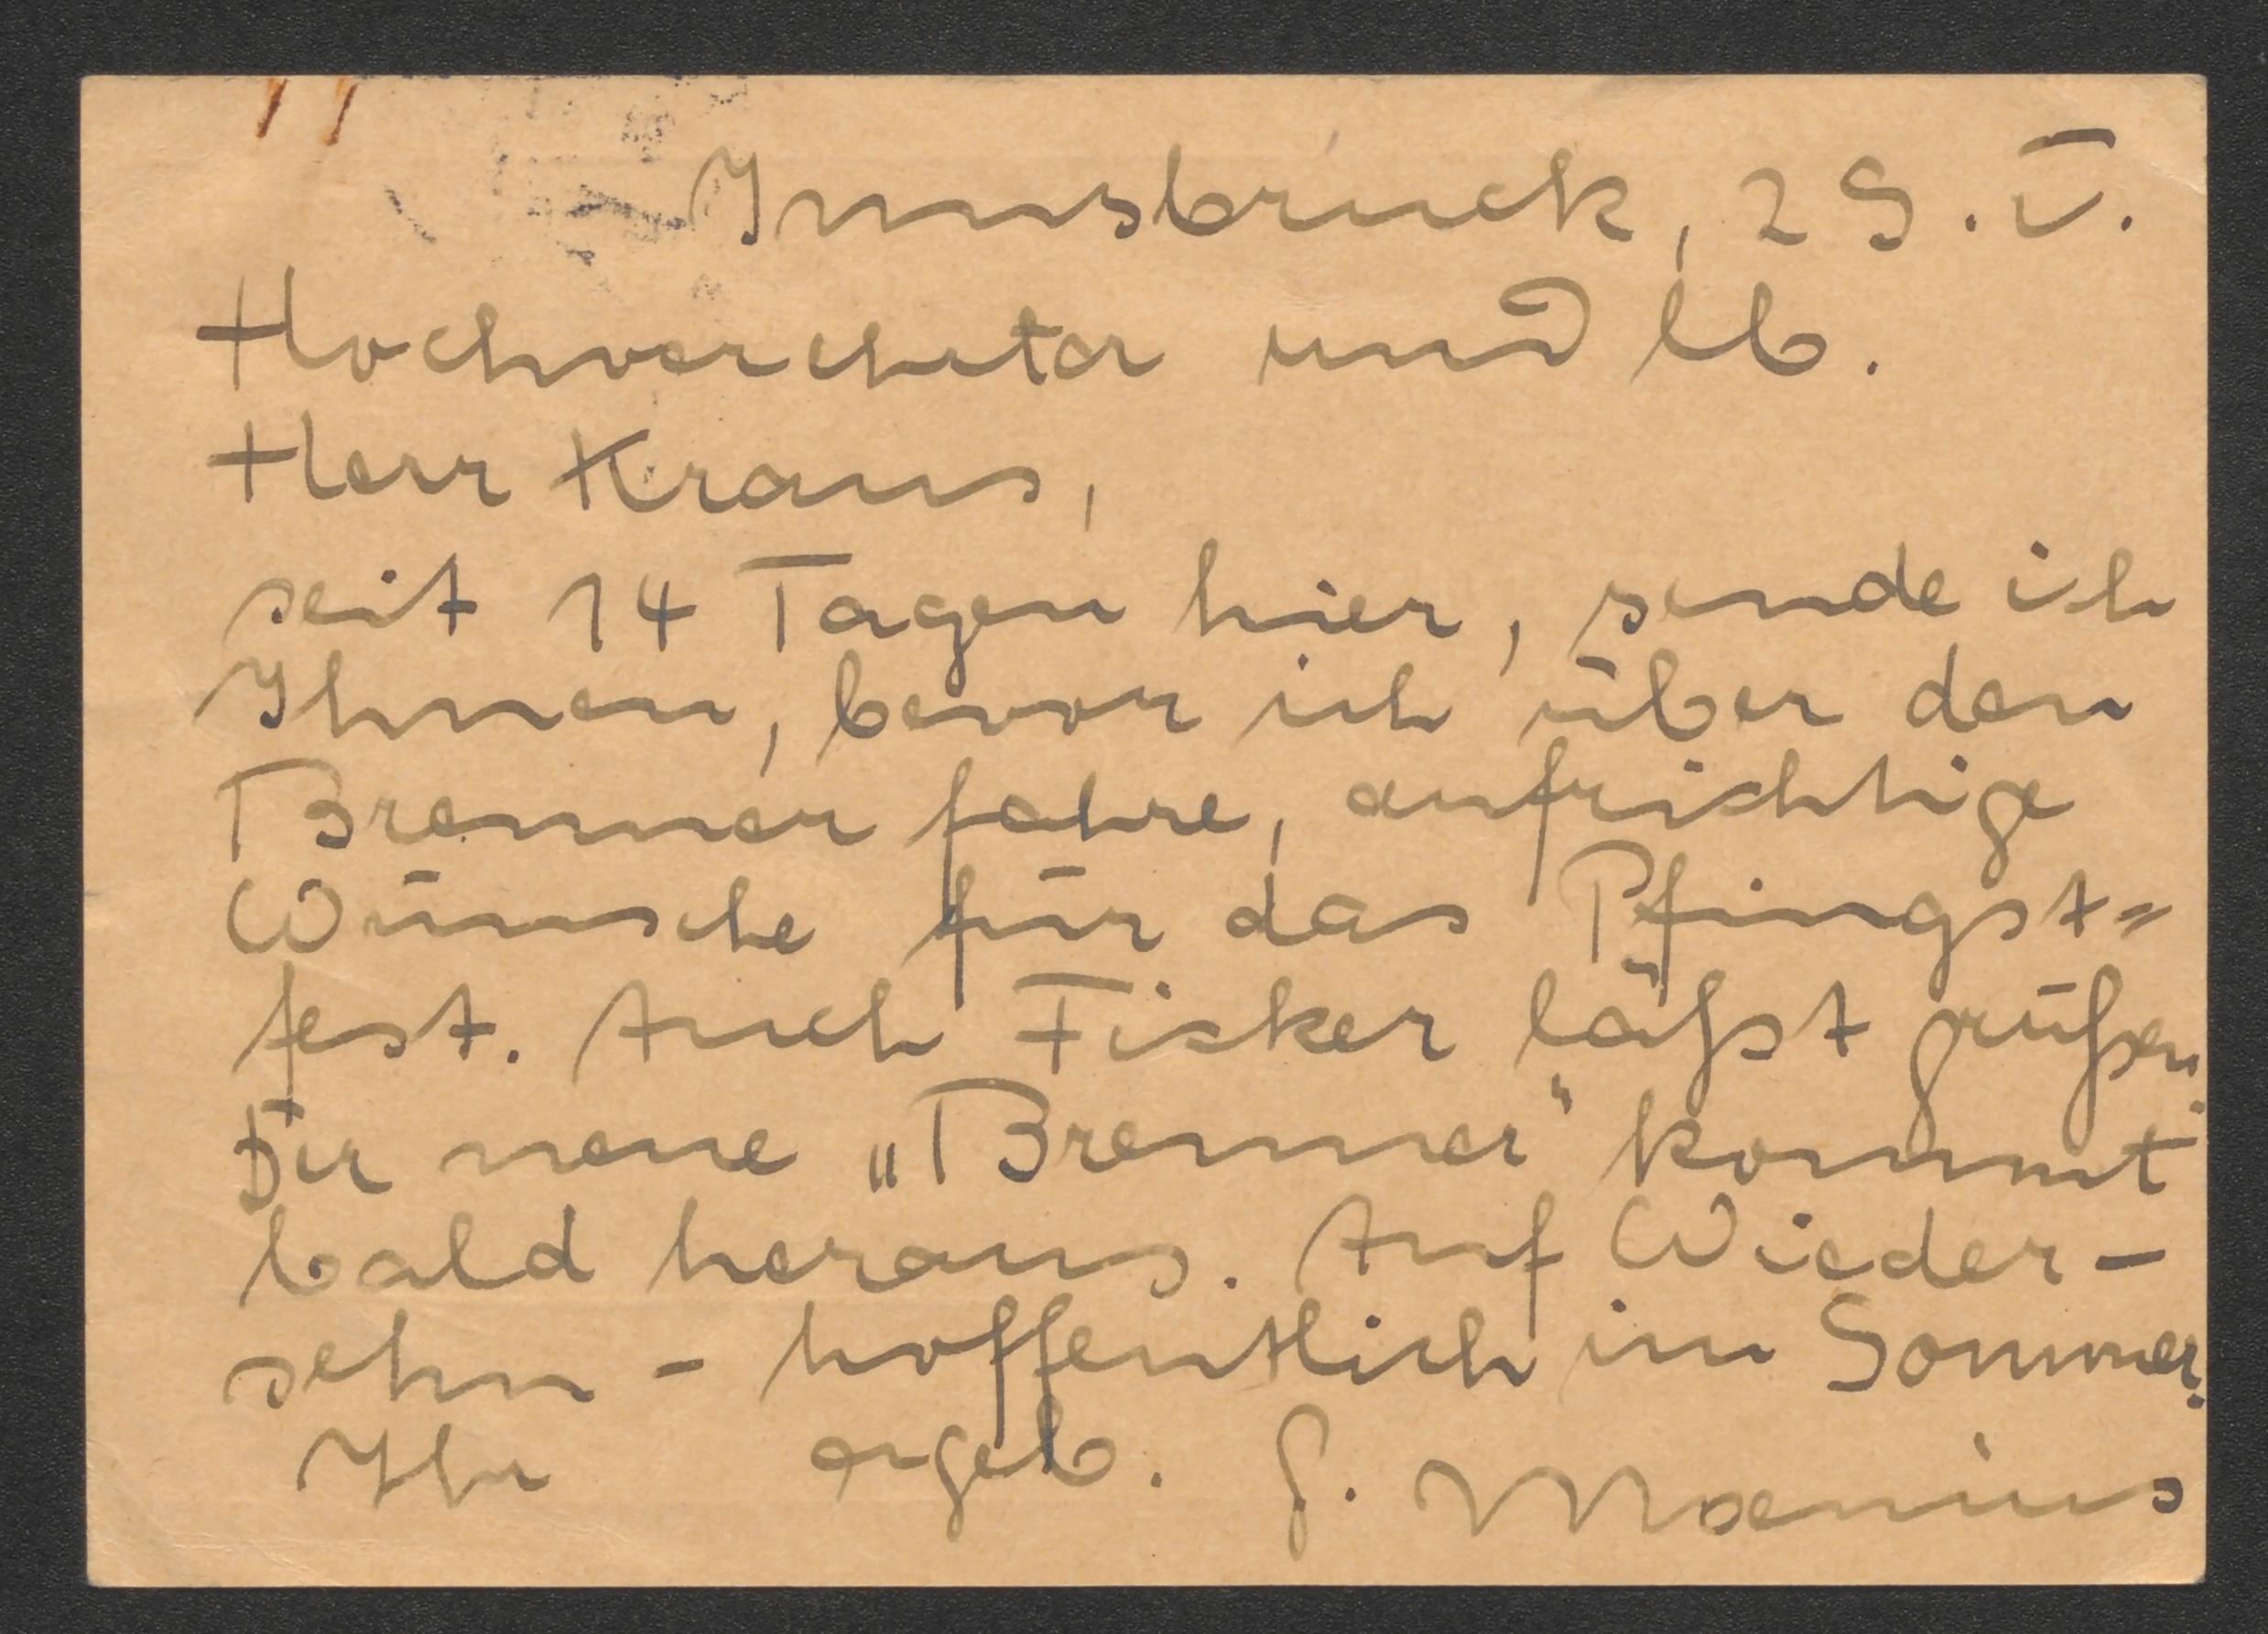 Innsbruck, 29. V.
Hochverehrter und lb.
Herr Kraus,
seit 14 Tagen hier, sende ich
Ihnen, bevor ich über den
Brenner fahre, aufrichtige
Wünsche für das Pfingst=
fest. Auch Ficker läßt grüßen.
Der neue „Brenner“ kommt
bald heraus. Auf Wieder-
sehn - hoffentlich im Sommer.
Ihr ergeb. G. Moenius